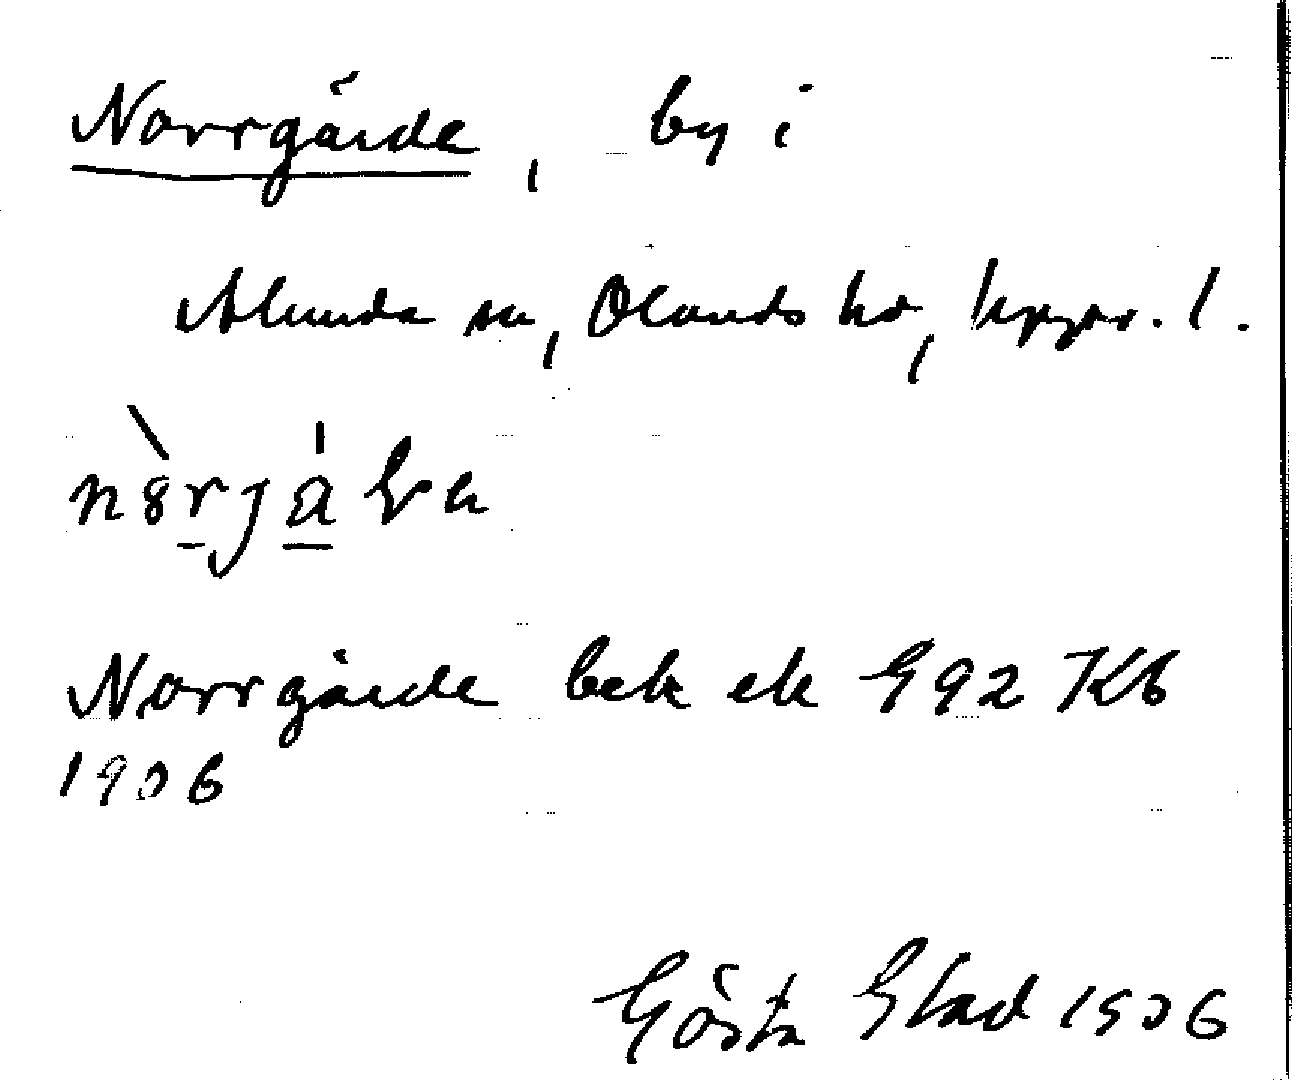 Norrgärde, by i
Alunda sn, Olands hd, Uppr. l.
Norrgärde bek ek G92 Kb
1906
Gösta Blad 1906